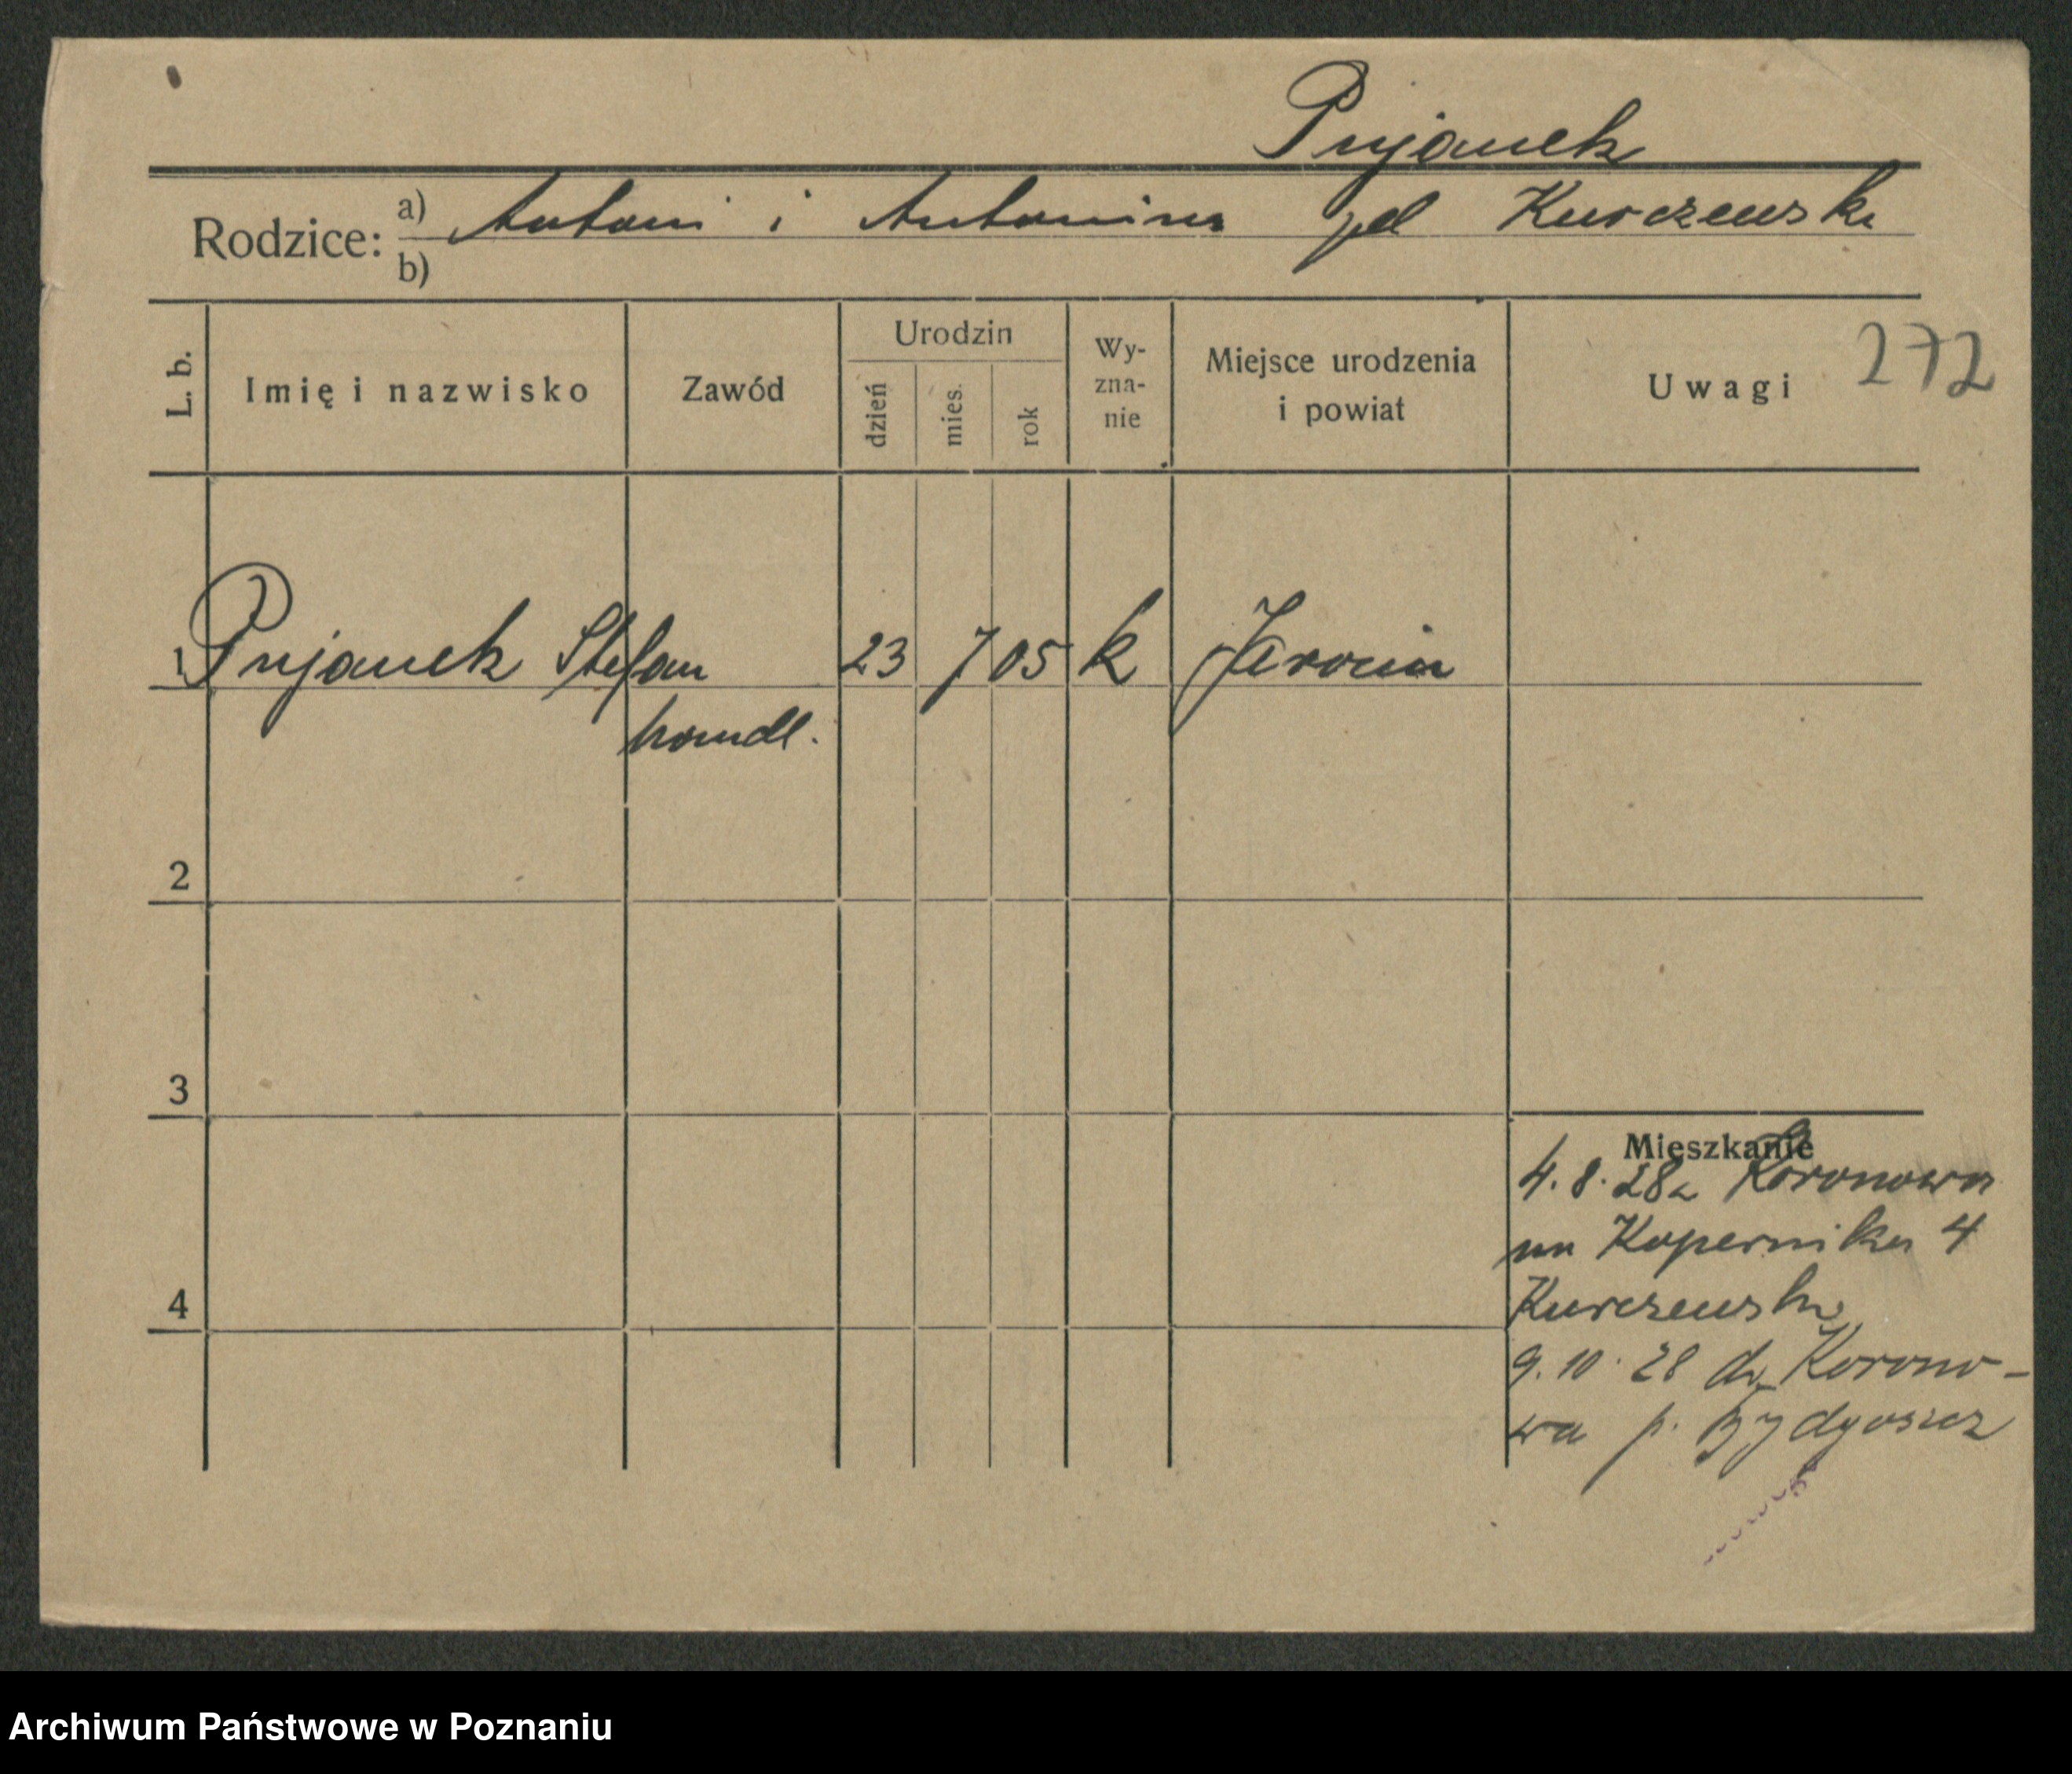 Pujanek
Rodzice: a) Antoni i Antonina Kurczewska
b)
L. b. Imię i nazwisko Zawód Urodzin dzień mies. rok Wy-zna-nie Miejsce urodzenia i powiat Uwagi 272
1 Pujanek Stefan 23 7 05 k Jarocin
handl.
2
3
Mieszkanie
4. 8. 28 z Koronowa
na Kopernika 4
4 Kurczewska
9. 10. 28 do Korono-
wa p. Bydgoszcz
Archiwum Państwowe w Poznaniu